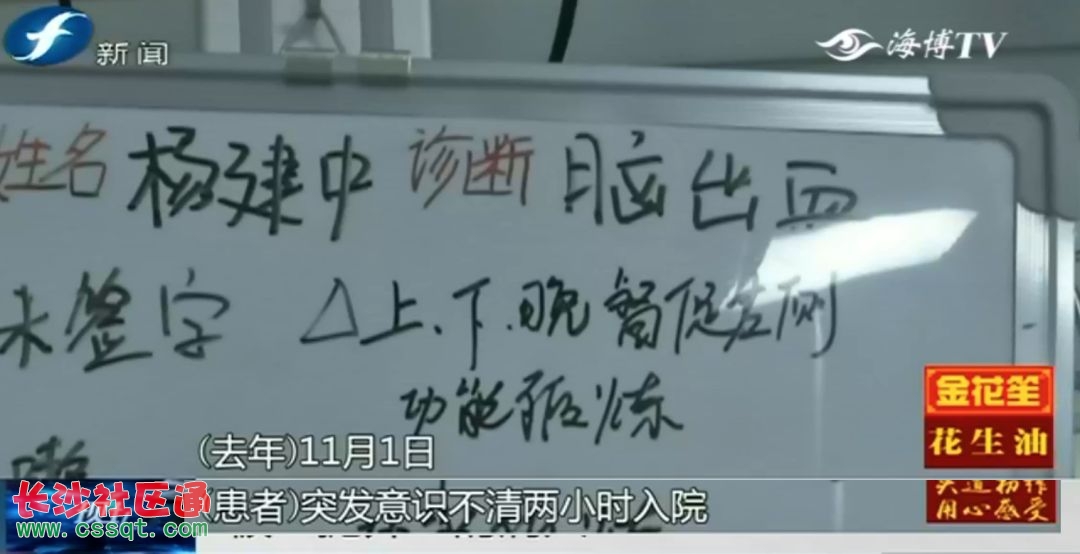 新闻
海博TV
姓名 杨建中 诊断 脑出血
未签字 △上、下、晚督促左侧
功能锻炼
金花笙
花生油
(去年)11月1日
(患者)突发意识不清两小时入院
用心感受
长沙社区通
www.cssqt.com